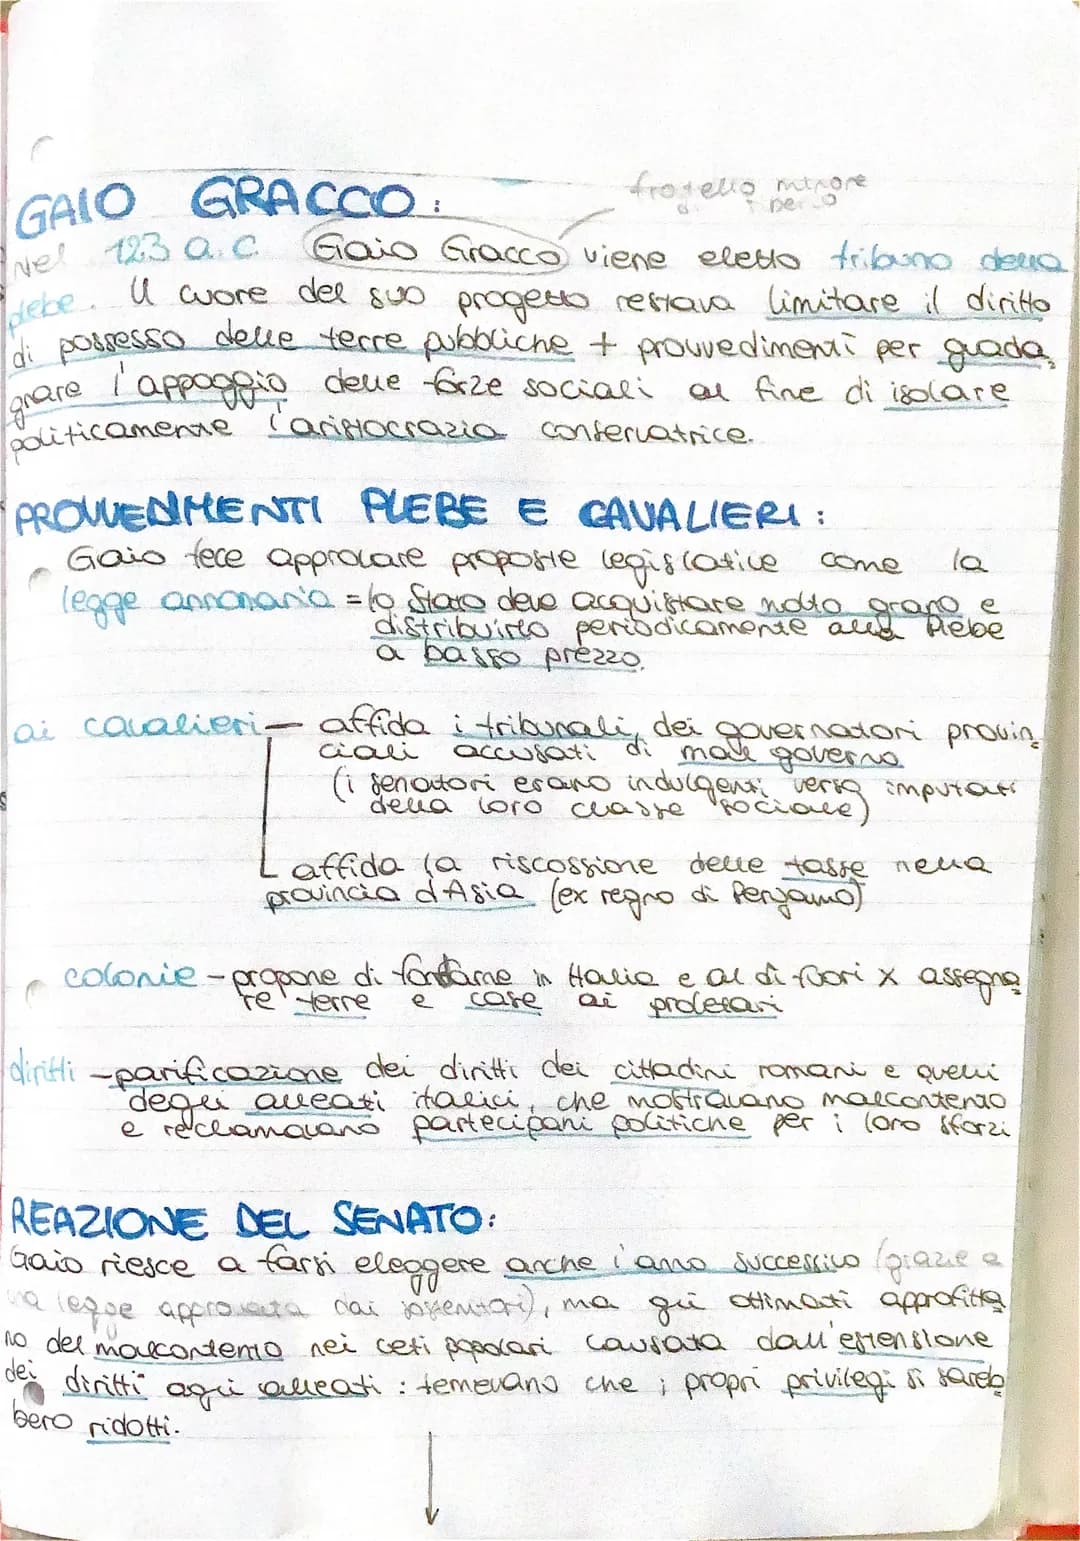 GAIO GRACCO:
fratello minore
Nel 123 a.C. Gaio Gracco viene eletto tribuno della
plebe. Il cuore del suo progetto restava limitare il diritto
di possesso delle terre pubbliche + provvedimenti per guada
gnare l'appoggio delle forze sociali al fine di isolare
politicamente l'aristocrazia conservatrice.
PROVVEDIMENTI PLEBE E CAVALIERI:
Gaio fece approvare proposte legislative come la
legge annonaria = lo Stato deve acquistare molto grano e
distribuirlo periodicamente alla plebe
a basso prezzo.
ai cavalieri — affida i tribunali, dei governatori provin
ciali accusati di mal governo
(i senatori erano indulgenti verso imputati
della loro classe sociale)
affida la riscossione delle tasse nella
provincia d'Asia (ex regno di Pergamo)
colonie - propone di fondarne in Italia e al di fuori x assegna
re terre e case ai proletari
diritti - parificazione dei diritti dei cittadini romani e quelli
degli alleati italici, che mostravano malcontento
e reclamavano partecipani politiche per i loro sforzi
REAZIONE DEL SENATO:
Gaio riesce a farsi eleggere anche l'anno successivo (grazie a
una legge approvata dai sostenitori), ma gli ottimati approfitta
no del malcontento nei ceti popolari causata dall'estensione
dei diritti agli alleati : temevano che i propri privilegi si sareb
bero ridotti.